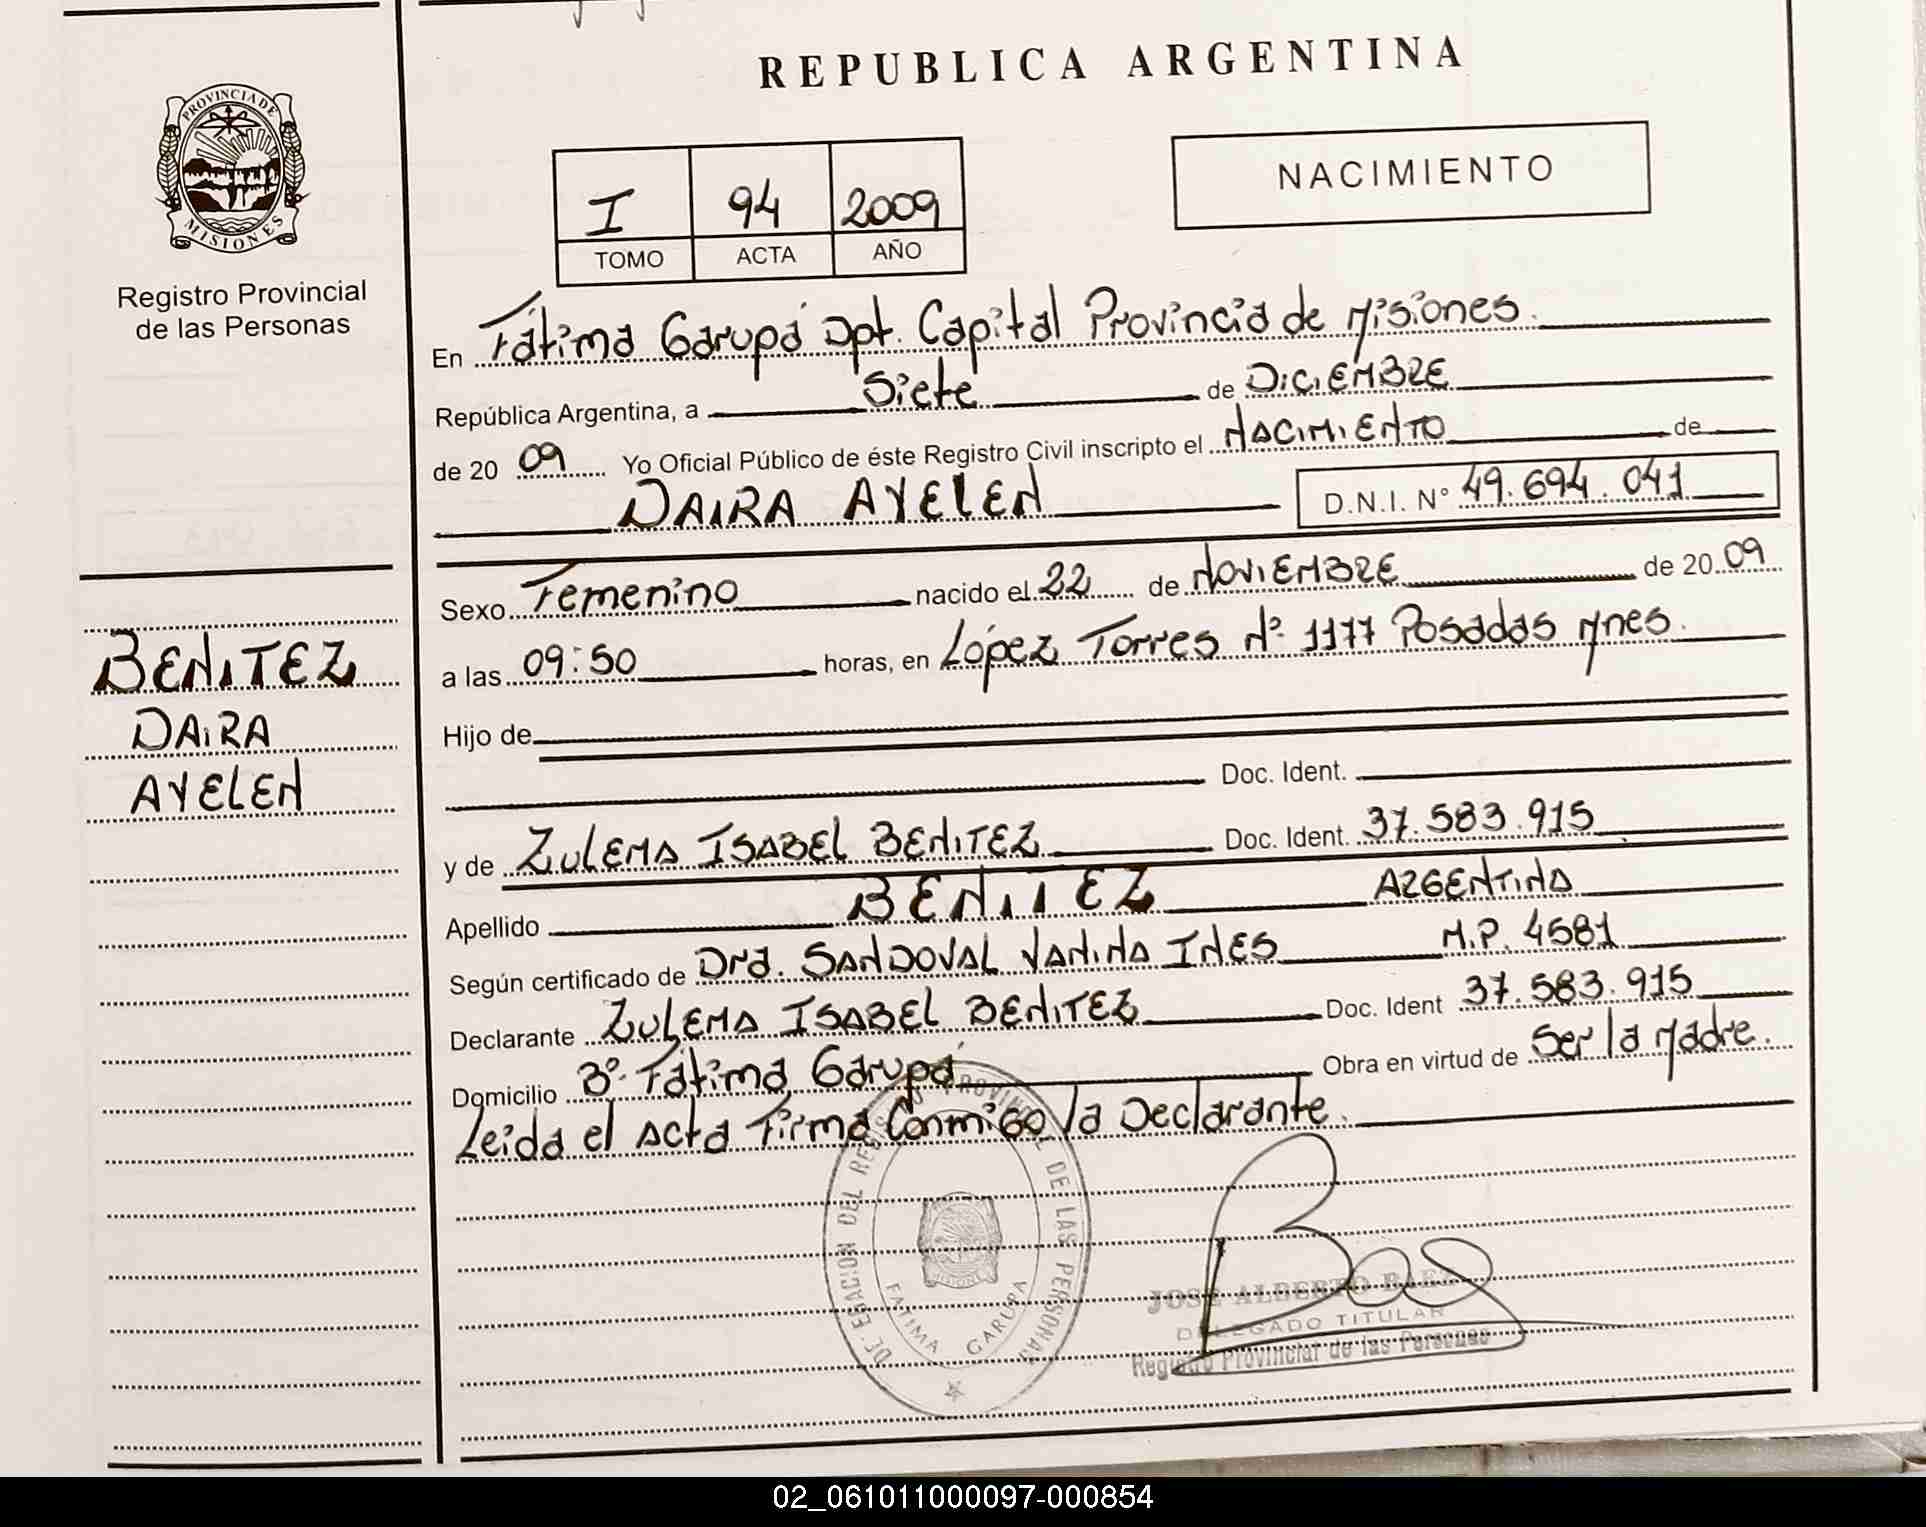 REPUBLICA ARGENTINA
PROVINCIA DE
MISIONES
Registro Provincial
de las Personas
I 94 2009
TOMO ACTA AÑO
NACIMIENTO
En Fátima Garupá Dpt. Capital Provincia de Misiones.
República Argentina, a Siete de DiCiEMBRE
de 20 09 Yo Oficial Público de éste Registro Civil inscripto el NACIMIENTO de
DAIRA AYELEN D.N.I. N° 49.694.041
Sexo Femenino nacido el 22 de NOVIEMBRE de 20 09
a las 09:50 horas, en López Torres Nº 1177 Posadas Mnes.
Hijo de
Doc. Ident.
y de ZULEMA ISABEL BENITEZ Doc. Ident. 37.583.915
Apellido BENITEZ ARGENTINA
Según certificado de Dra. SANDOVAL VANINA INES M.P. 4581
Declarante ZULEMA ISABEL BENITEZ Doc. Ident 37.583.915
Domicilio Bº Fátima Garupá Obra en virtud de Ser la Madre.
Leida el Acta Firma Conmigo la Declarante.
BENITEZ
DAIRA
AYELEN
DELEGACION DEL REGISTRO PROVINCIAL DE LAS PERSONAS
FATIMA GARUPA
JOSE ALBERTO BAEZ
DELEGADO TITULAR
Registro Provincial de las Personas
02_061011000097-000854